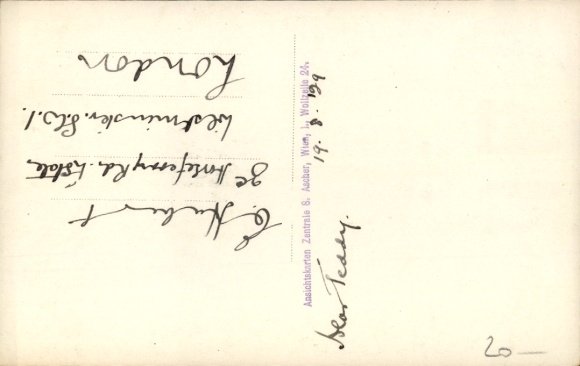 Horseferry Rd. Estate
Westminster. S.W.1.
London
Ansichtskarten Zentrale S. Ascher, Wien, I., Wollzeile 24.
19. 8.
Dear Teddy.
20—